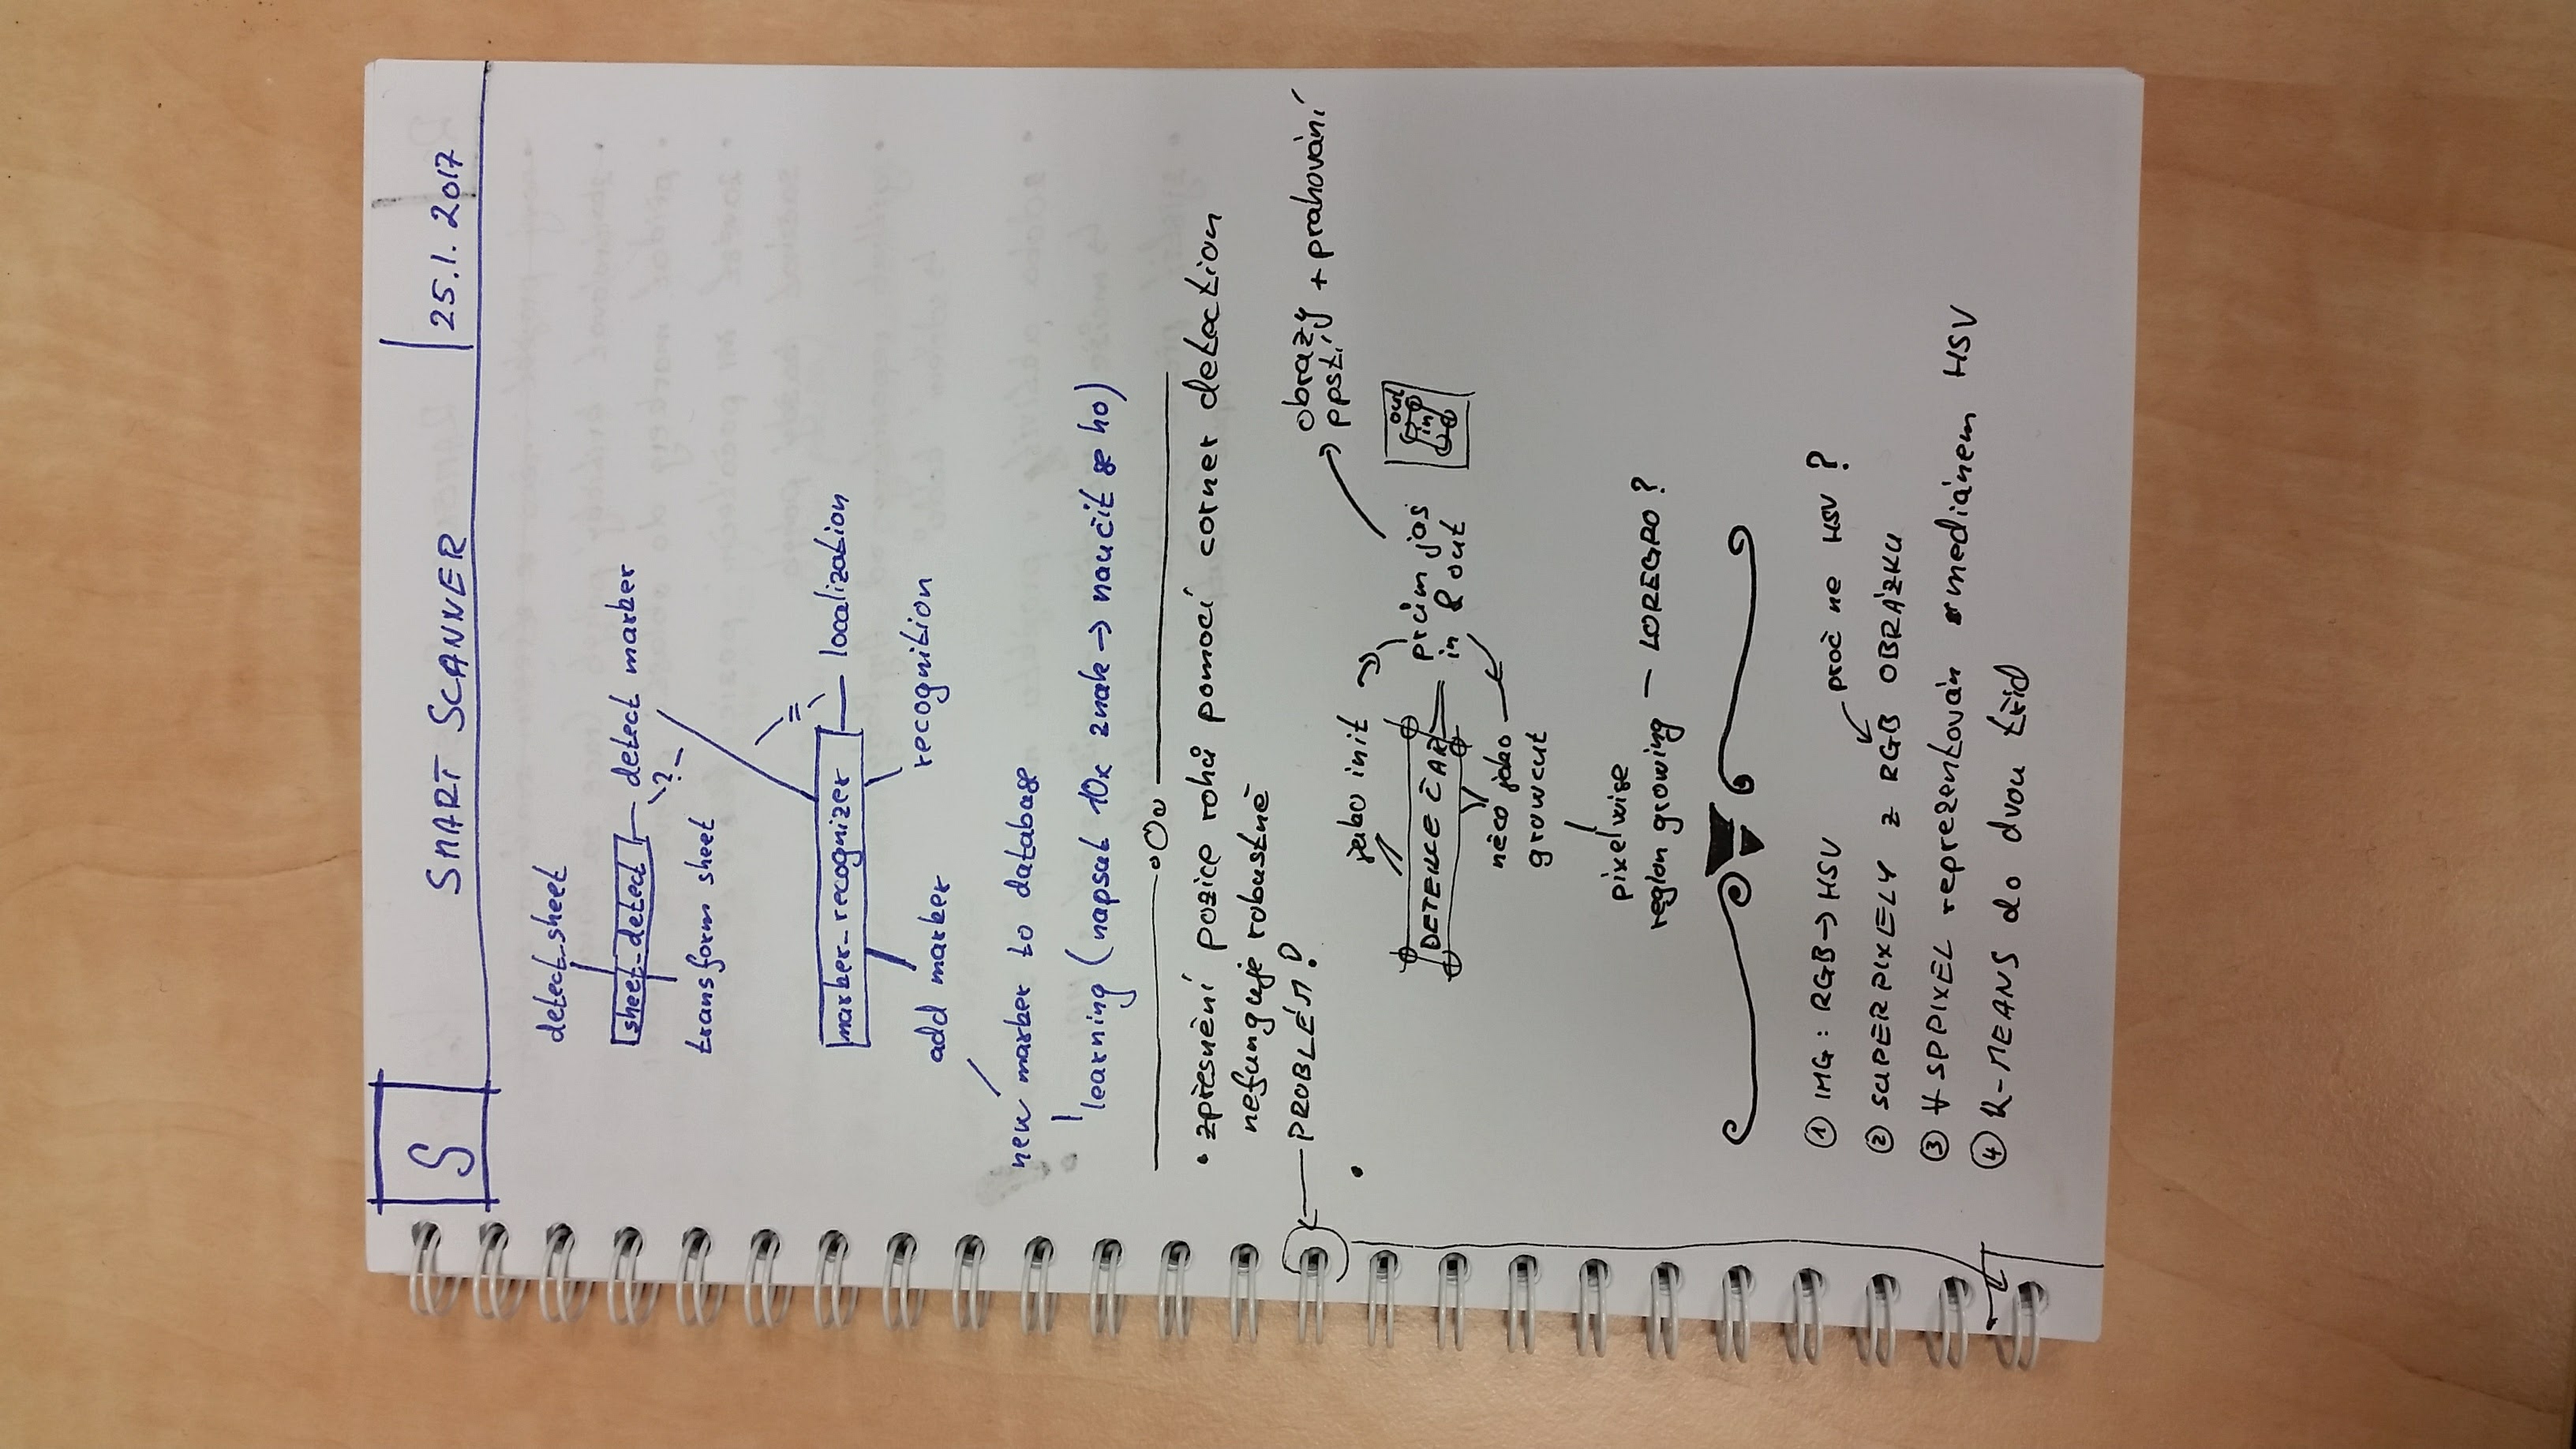 S
SMART SCANNER
25.1.2017
detect_sheet
sheet_detect
detect marker
?
transform sheet
=
marker_recognizer
localization
add marker
recognition
new marker to database
learning (napsat 10x znak → naučit se ho)
• zpřesnění pozice rohů pomocí corner detection
nefunguje robustně
PROBLÉM!
obrazy
ppstí
+ prahování
•
jako init
DETEKCE ČAR
prům jas
in & out
out
in
něco jako
growcut
pixelwise
region growing — LOREGRO?
① IMG: RGB → HSV
proč ne HSV?
② SUPERPIXELY z RGB OBRÁZKU
③ ∀ SPPIXEL reprezentován mediánem HSV
④ K-MEANS do dvou tříd